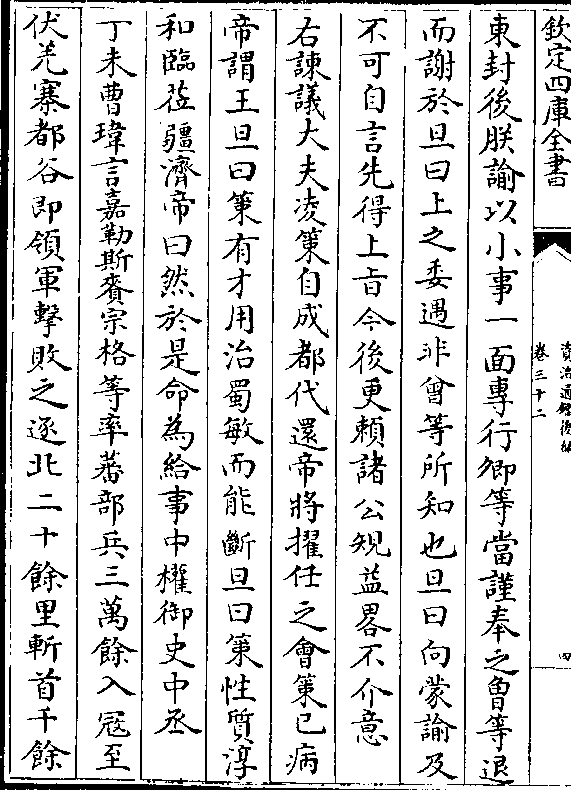 欽定四庫全書
資治通鑑後編
卷三十二
四
東封後朕諭以小事一面專行卿等當謹奉之曾等退
而謝於旦曰上之委遇非曾等所知也旦曰向蒙諭及
不可自言先得上旨今後更賴諸公規益畧不介意
右諫議大夫凌策自成都代還帝將擢任之會策已病
帝謂王旦曰策有才用治蜀敏而能斷旦曰策性質淳
和臨莅彊濟帝曰然於是命為給事中權御史中丞
丁未曹瑋言嘉勒斯賚宗格等率蕃部兵三萬餘入冦至
伏羌寨都谷即領軍擊敗之逐北二十餘里斬首千餘